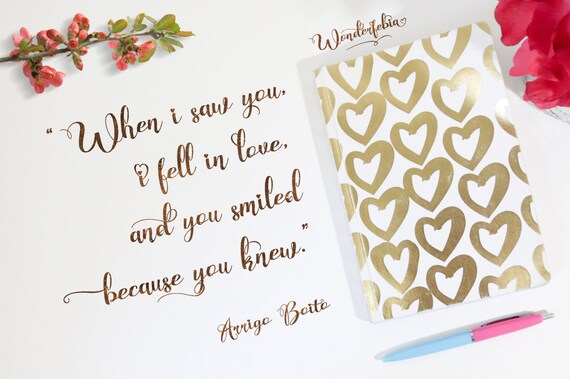 Wonderfebia
“When i saw you,
i fell in love,
and you smiled
because you knew.”
Arrigo Boito